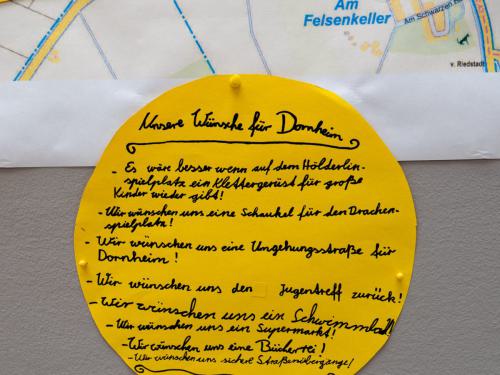 Am
Felsenkeller
Am Schwarzen
v. Riedstadt
Unsere Wünsche für Dornheim
- Es wäre besser wenn auf dem Hölderlin-
spielplatz ein Klettergerüst für große
Kinder wieder gibt!
- Wir wünschen uns eine Schaukel für den Drachen-
spielplatz!
- Wir wünschen uns eine Umgehungsstraße für
Dornheim!
- Wir wünschen uns den Jugentreff zurück!
- Wir wünschen uns ein Schwimmbad!
- Wir wünschen uns ein Supermarkt!
- Wir wünschen uns eine Bücherei!
- Wir wünschen uns sichere Straßenübergänge!